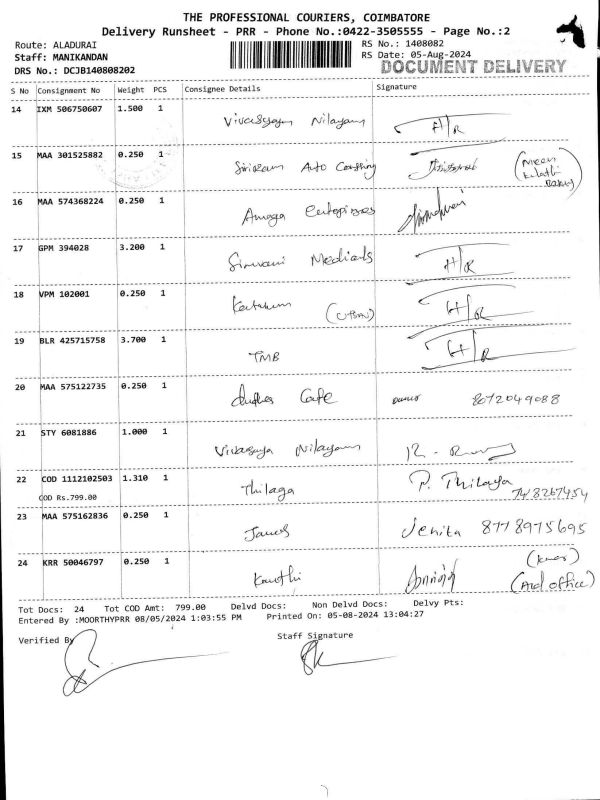 THE PROFESSIONAL COURIERS, COIMBATORE
Delivery Runsheet - PRR - Phone No.:0422-3505555 - Page No.:2
Route: ALADURAI
RS No.: 1408082
Staff: MANIKANDAN
RS Date: 05-Aug-2024
DRS No.: DCJB140808202
DOCUMENT DELIVERY
S No Consignment No Weight PCS Consignee Details Signature
14 IXM 506750607 1.500 1 Nilayam H/R
15 MAA 301525882 0.250 1 Auto
16 MAA 574368224 0.250 1
17 GPM 394028 3.200 1 H/R
18 VPM 102001 0.250 1 H/R
19 BLR 425715758 3.700 1 TMB H/R
20 MAA 575122735 0.250 1 Cafe 8072049088
21 STY 6081886 1.000 1 Nilayam
22 COD 1112102503 1.310 1 Thilaga P. Thilaga
COD Rs.799.00 748267454
23 MAA 575162836 0.250 1 Jenita 8778975695
24 KRR 50046797 0.250 1 Kauthi (Aad office)
Tot Docs: 24 Tot COD Amt: 799.00 Delvd Docs: Non Delvd Docs: Delvy Pts:
Entered By :MOORTHYPRR 08/05/2024 1:03:55 PM Printed On: 05-08-2024 13:04:27
Verified By Staff Signature